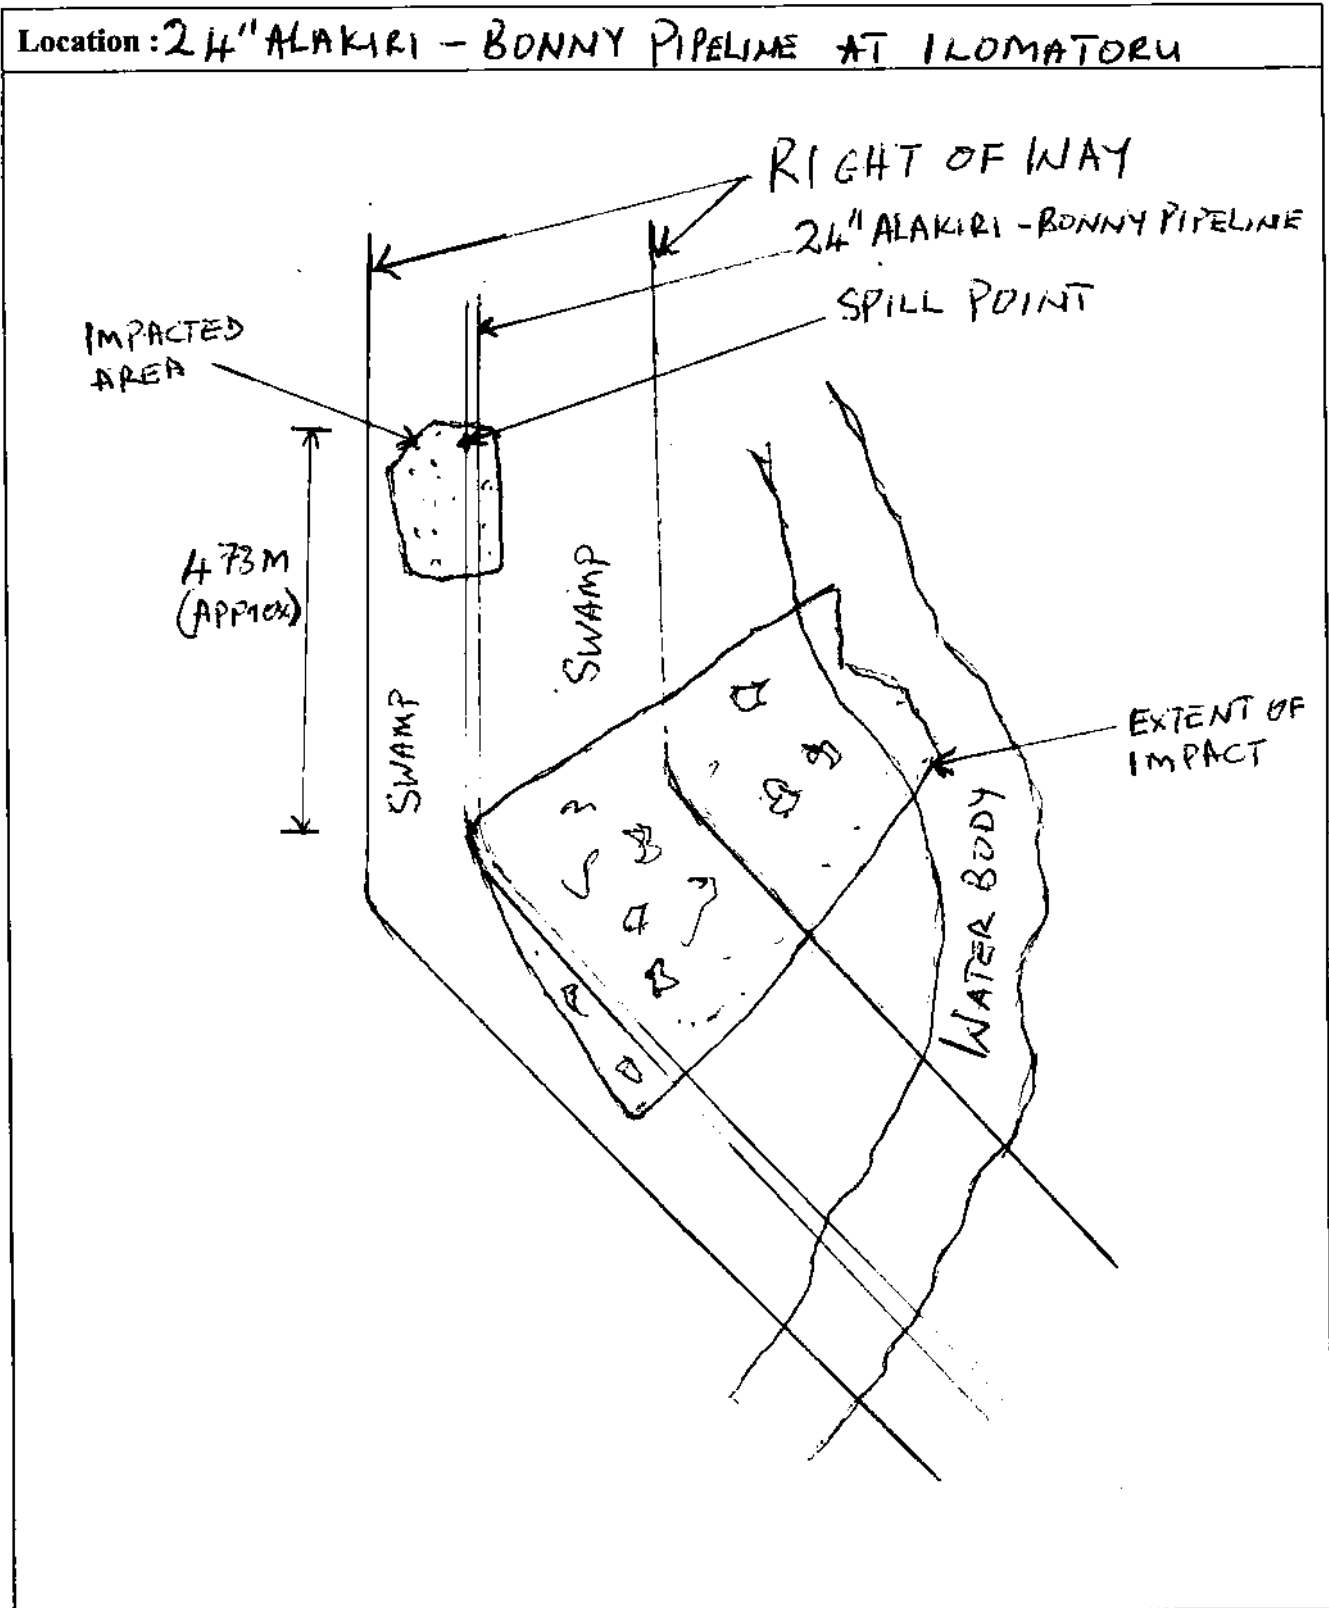 Location : 24" ALAKIRI - BONNY PIPELINE AT ILOMATORU
RIGHT OF WAY
24" ALAKIRI - BONNY PIPELINE
SPILL POINT
IMPACTED
AREA
473M
(APPROX)
SWAMP
SWAMP
EXTENT OF
IMPACT
WATER BODY